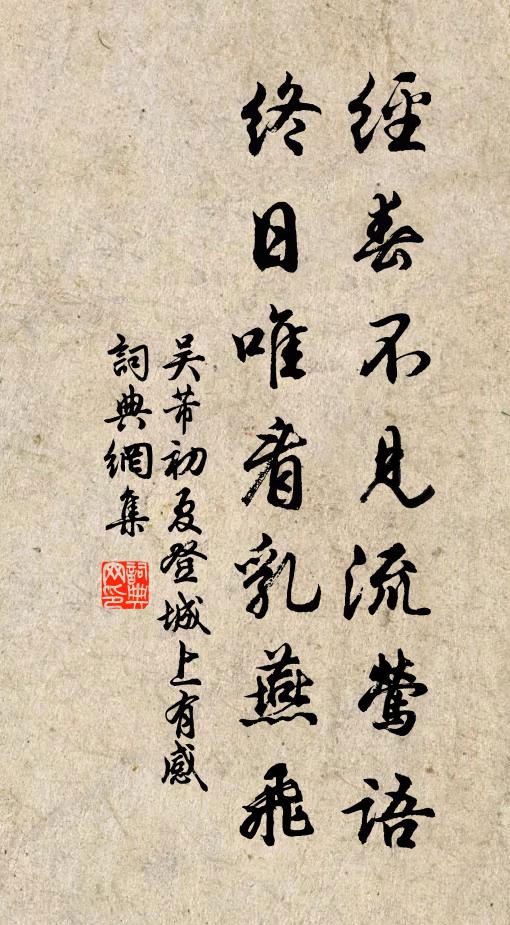 經春不見流鶯語
終日唯看乳燕飛
吴芾初夏登城上有感
詞典網集
詞典網印